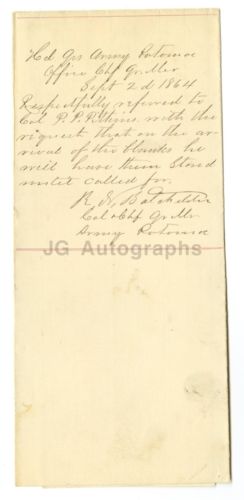 Hd Qrs Army Potomac
Office Chf Qr Mr
Sept 2d 1864
Respectfully referred to
Col P. P. Pitkin with the
request that on the ar-
rival of the blanks he
will have them stored
until called for.
R N Batchelder
Col & Chf Qr Mr
Army Potomac
JG Autographs